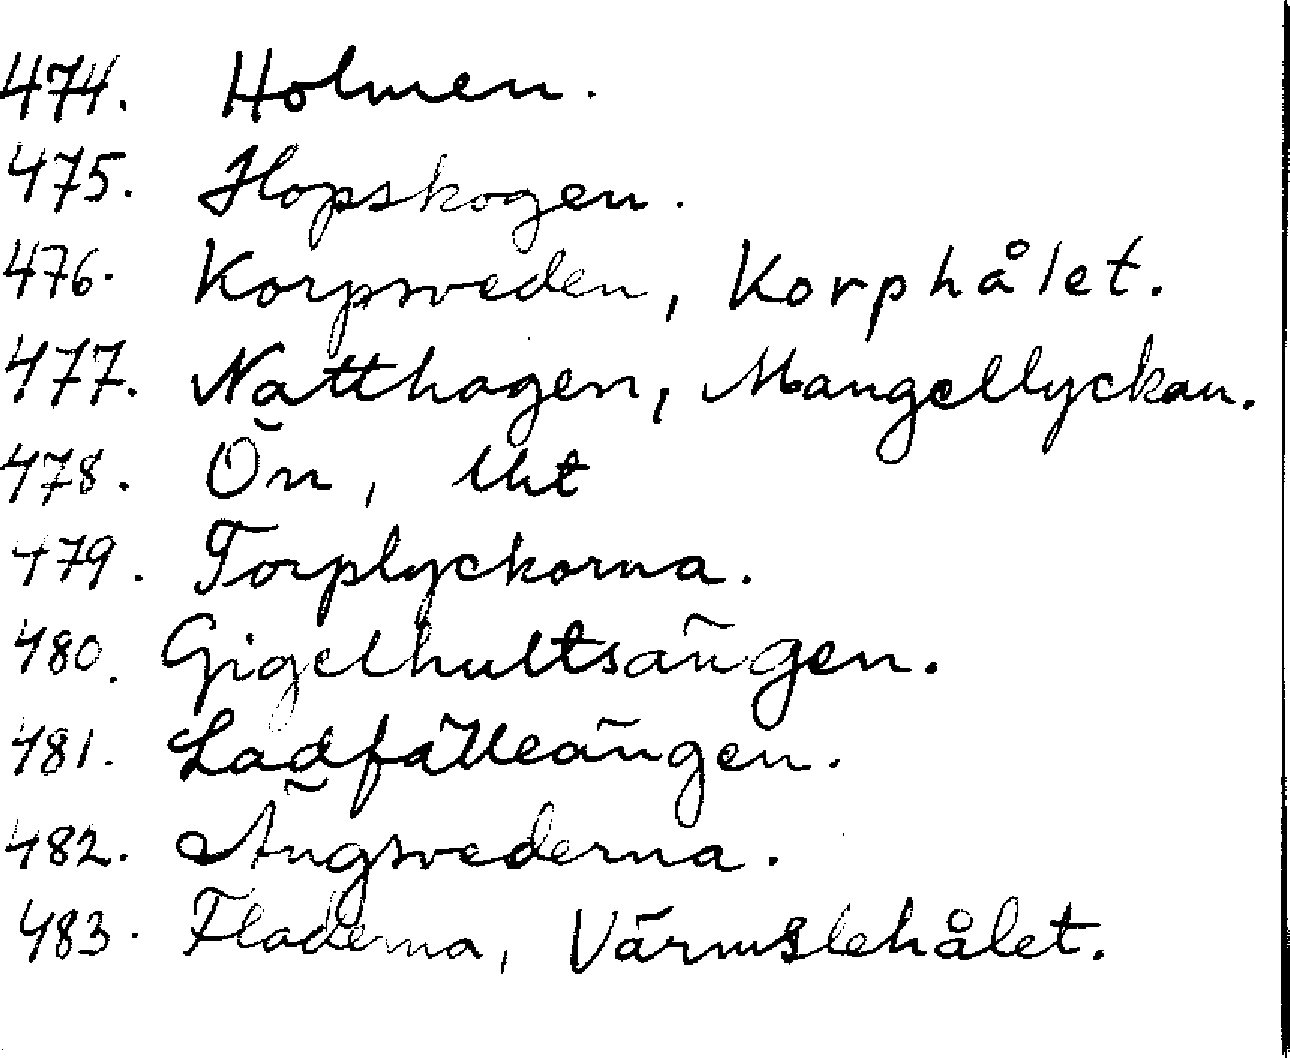 474. Holmen.
475. Hopskogen.
476. Korpsveden, Korphålet.
477. Natthagen, Mangellyckan.
478. Ön,
479. Torplyckorna.
480. Gigelhultsängen.
481. Ladfälleängen.
482. Ängsvederna.
483. Fladerna, Värmslehålet.